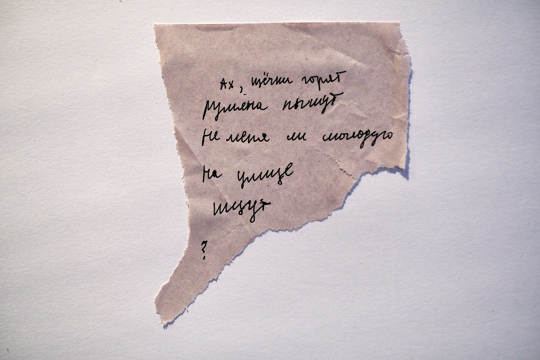 Ах, щёчки горят
румяна пышут
Не меня ли молодую
на улице
ищут
?